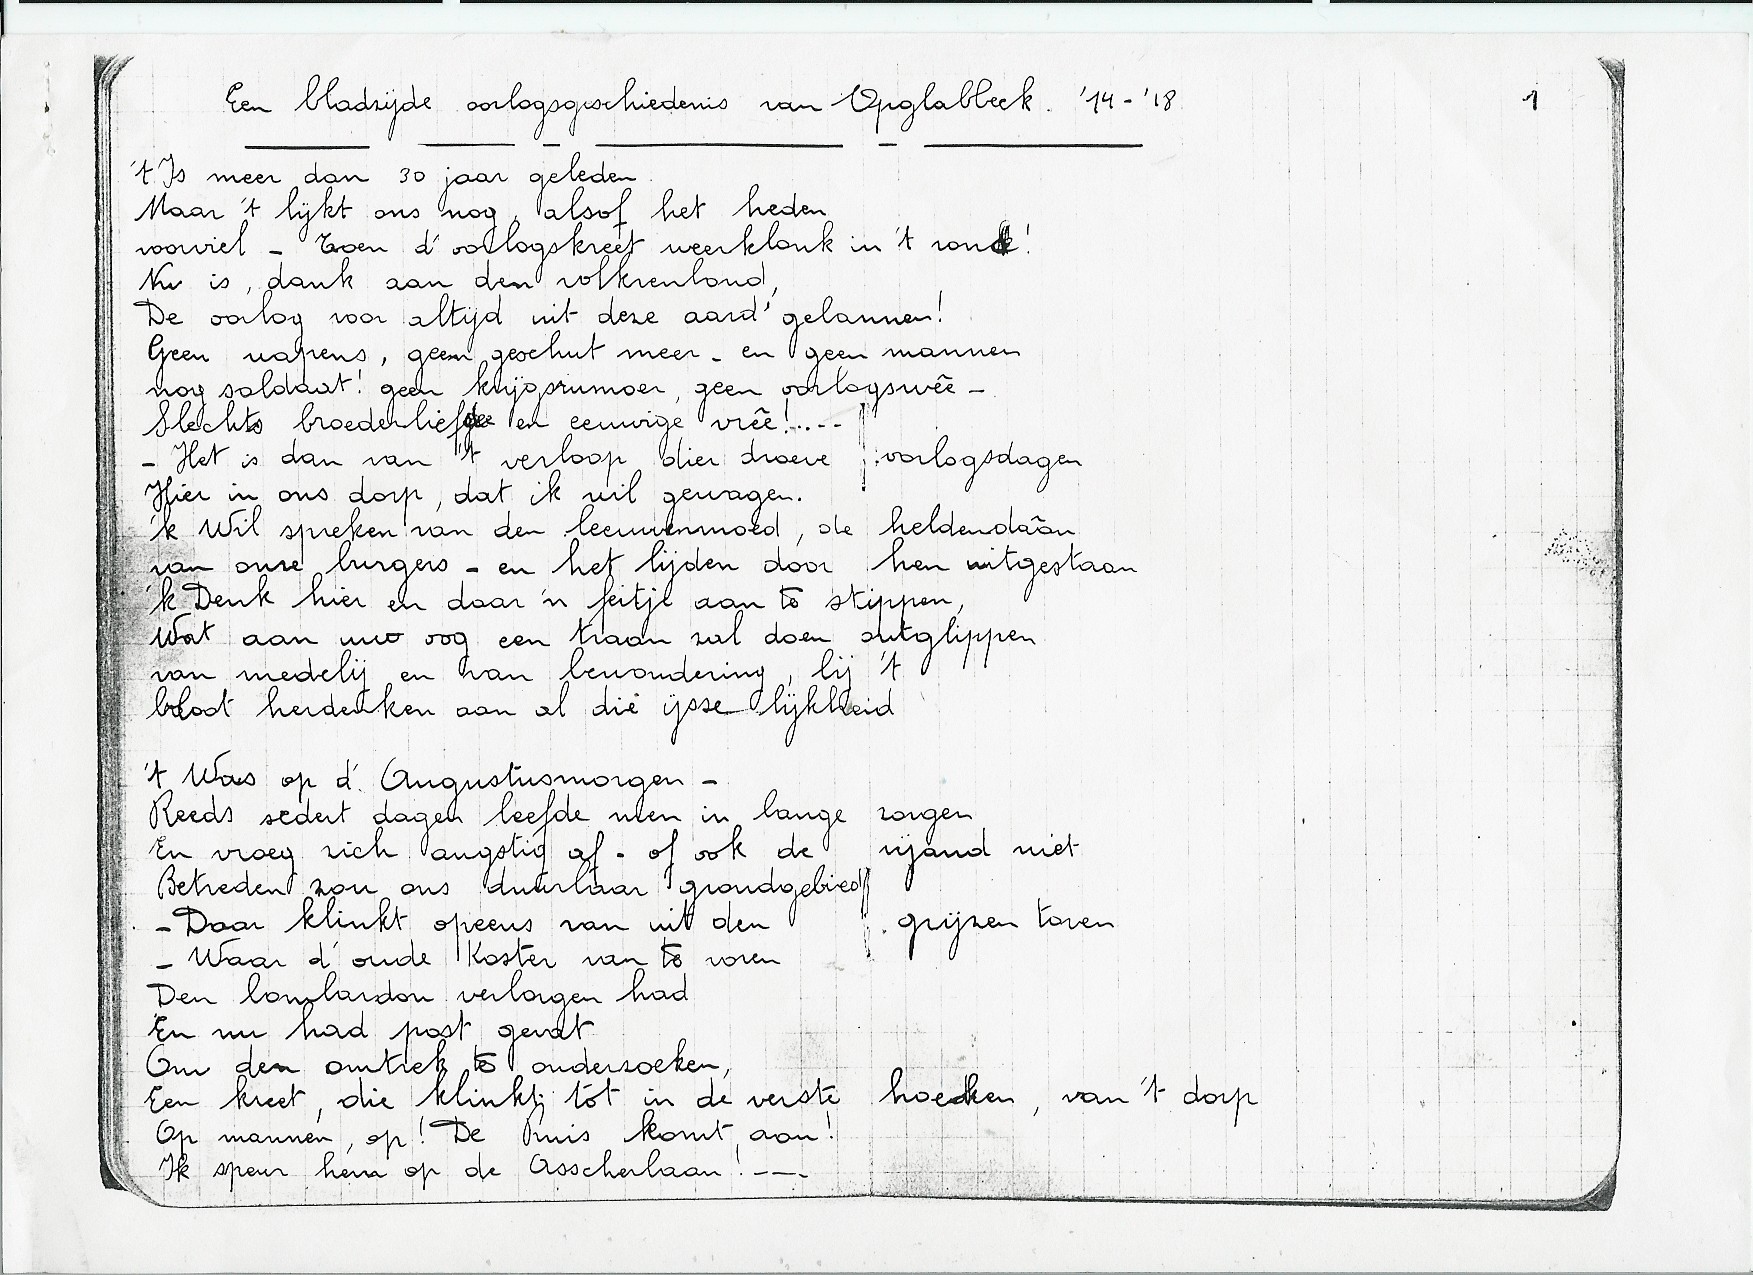 Een bladzijde oorlogsgeschiedenis van Opglabbeek. '14-'18
1
't Is meer dan 30 jaar geleden
Maar 't lijkt ons nog, alsof het heden
voorviel - Toen d' oorlogskreet weerklonk in 't rond!
Nu is, dank aan den volkrenbond,
De oorlog voor altijd uit deze aard' gebannen!
Geen wapens, geen geschut meer - en geen mannen
nog soldaat! geen krijgsrumoer, geen oorlogswêe -
Slechts broederliefde en eeuwige vrêe!....-
- Het is dan van 't verloop dier droeve oorlogsdagen
Hier in ons dorp, dat ik wil gewagen.
'k Wil spreken van den leeuwenmoed, de heldendaân
van onze burgers - en het lijden door hen uitgestaan
'k Denk hier en daar 'n feitje aan te stippen,
Wat aan uw oog een traan zal doen ontglippen
van medelij en van bewondering, bij 't
bloot herdenken aan al die ijsselijkheid
't Was op d' Augustusmorgen -
Reeds sedert dagen leefde men in bange zorgen
En vroeg zich angstig af - of ook de vijand niet
Betreden zou ons duurbaar grondgebied
- Daar klinkt opeens van uit den grijzen toren
- Waar d' oude Koster van te voren
Den bombardon verborgen had
En nu had post gevat
Om den omtrek te onderzoeken,
Een kreet, die klinkt tot in de verste hoeken, van 't dorp
Op mannen, op! De Pruis komt aan!
Ik speur hem op de Asscherbaan! ---